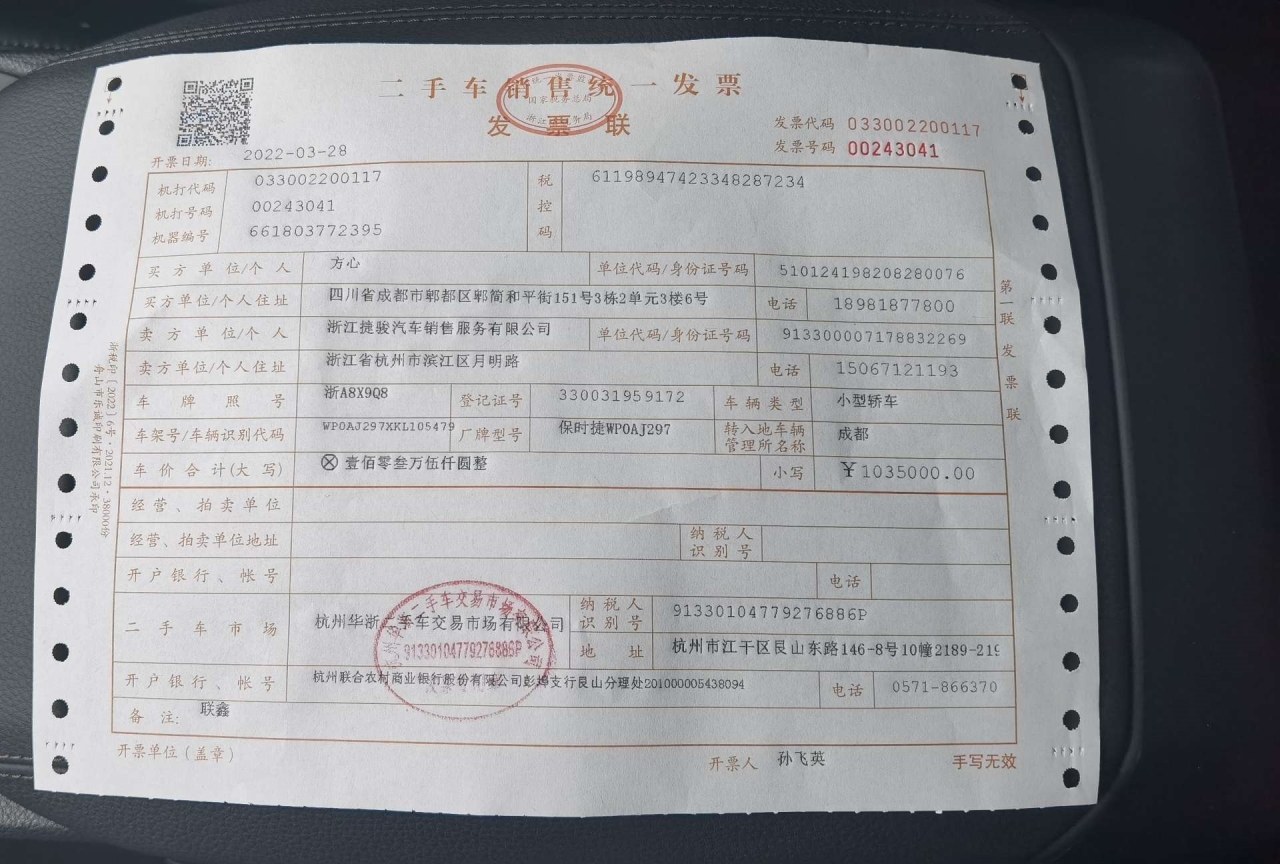 二手车销售统一发票
发票联
国家税务总局
发票代码 033002200117
发票号码 00243041
开票日期: 2022-03-28
机打代码 033002200117
机打号码 00243041
机器编号 661803772395
税控码 61198947423348287234
买方单位/个人 方心 单位代码/身份证号码 510124198208280076
买方单位/个人住址 四川省成都市郫都区郫简和平街151号3栋2单元3楼6号 电话 18981877800
卖方单位/个人 浙江捷骏汽车销售服务有限公司 单位代码/身份证号码 913300007178832269
卖方单位/个人住址 浙江省杭州市滨江区月明路 电话 15067121193
车牌照号 浙A8X9Q8 登记证号 330031959172 车辆类型 小型轿车
车架号/车辆识别代码 WP0AJ297XKL105479 厂牌型号 保时捷WP0AJ297 转入地车辆管理所名称 成都
车价合计(大写) ⊗壹佰零叁万伍仟圆整 小写 ￥1035000.00
经营、拍卖单位
经营、拍卖单位地址 纳税人识别号
开户银行、帐号 电话
二手车市场 杭州华浙二手车交易市场有限公司 纳税人识别号 91330104779276886P
地址 杭州市江干区艮山东路146-8号10幢2189-219
开户银行、帐号 杭州联合农村商业银行股份有限公司彭埠支行艮山分理处201000005438094 电话 0571-866370
备注: 联鑫
开票单位(盖章) 开票人 孙飞英 手写无效
第一联 发票联
浙税印〔2022〕6号·2021.12·38000份
舟山市乐诚印刷有限公司承印
91330104779276886P